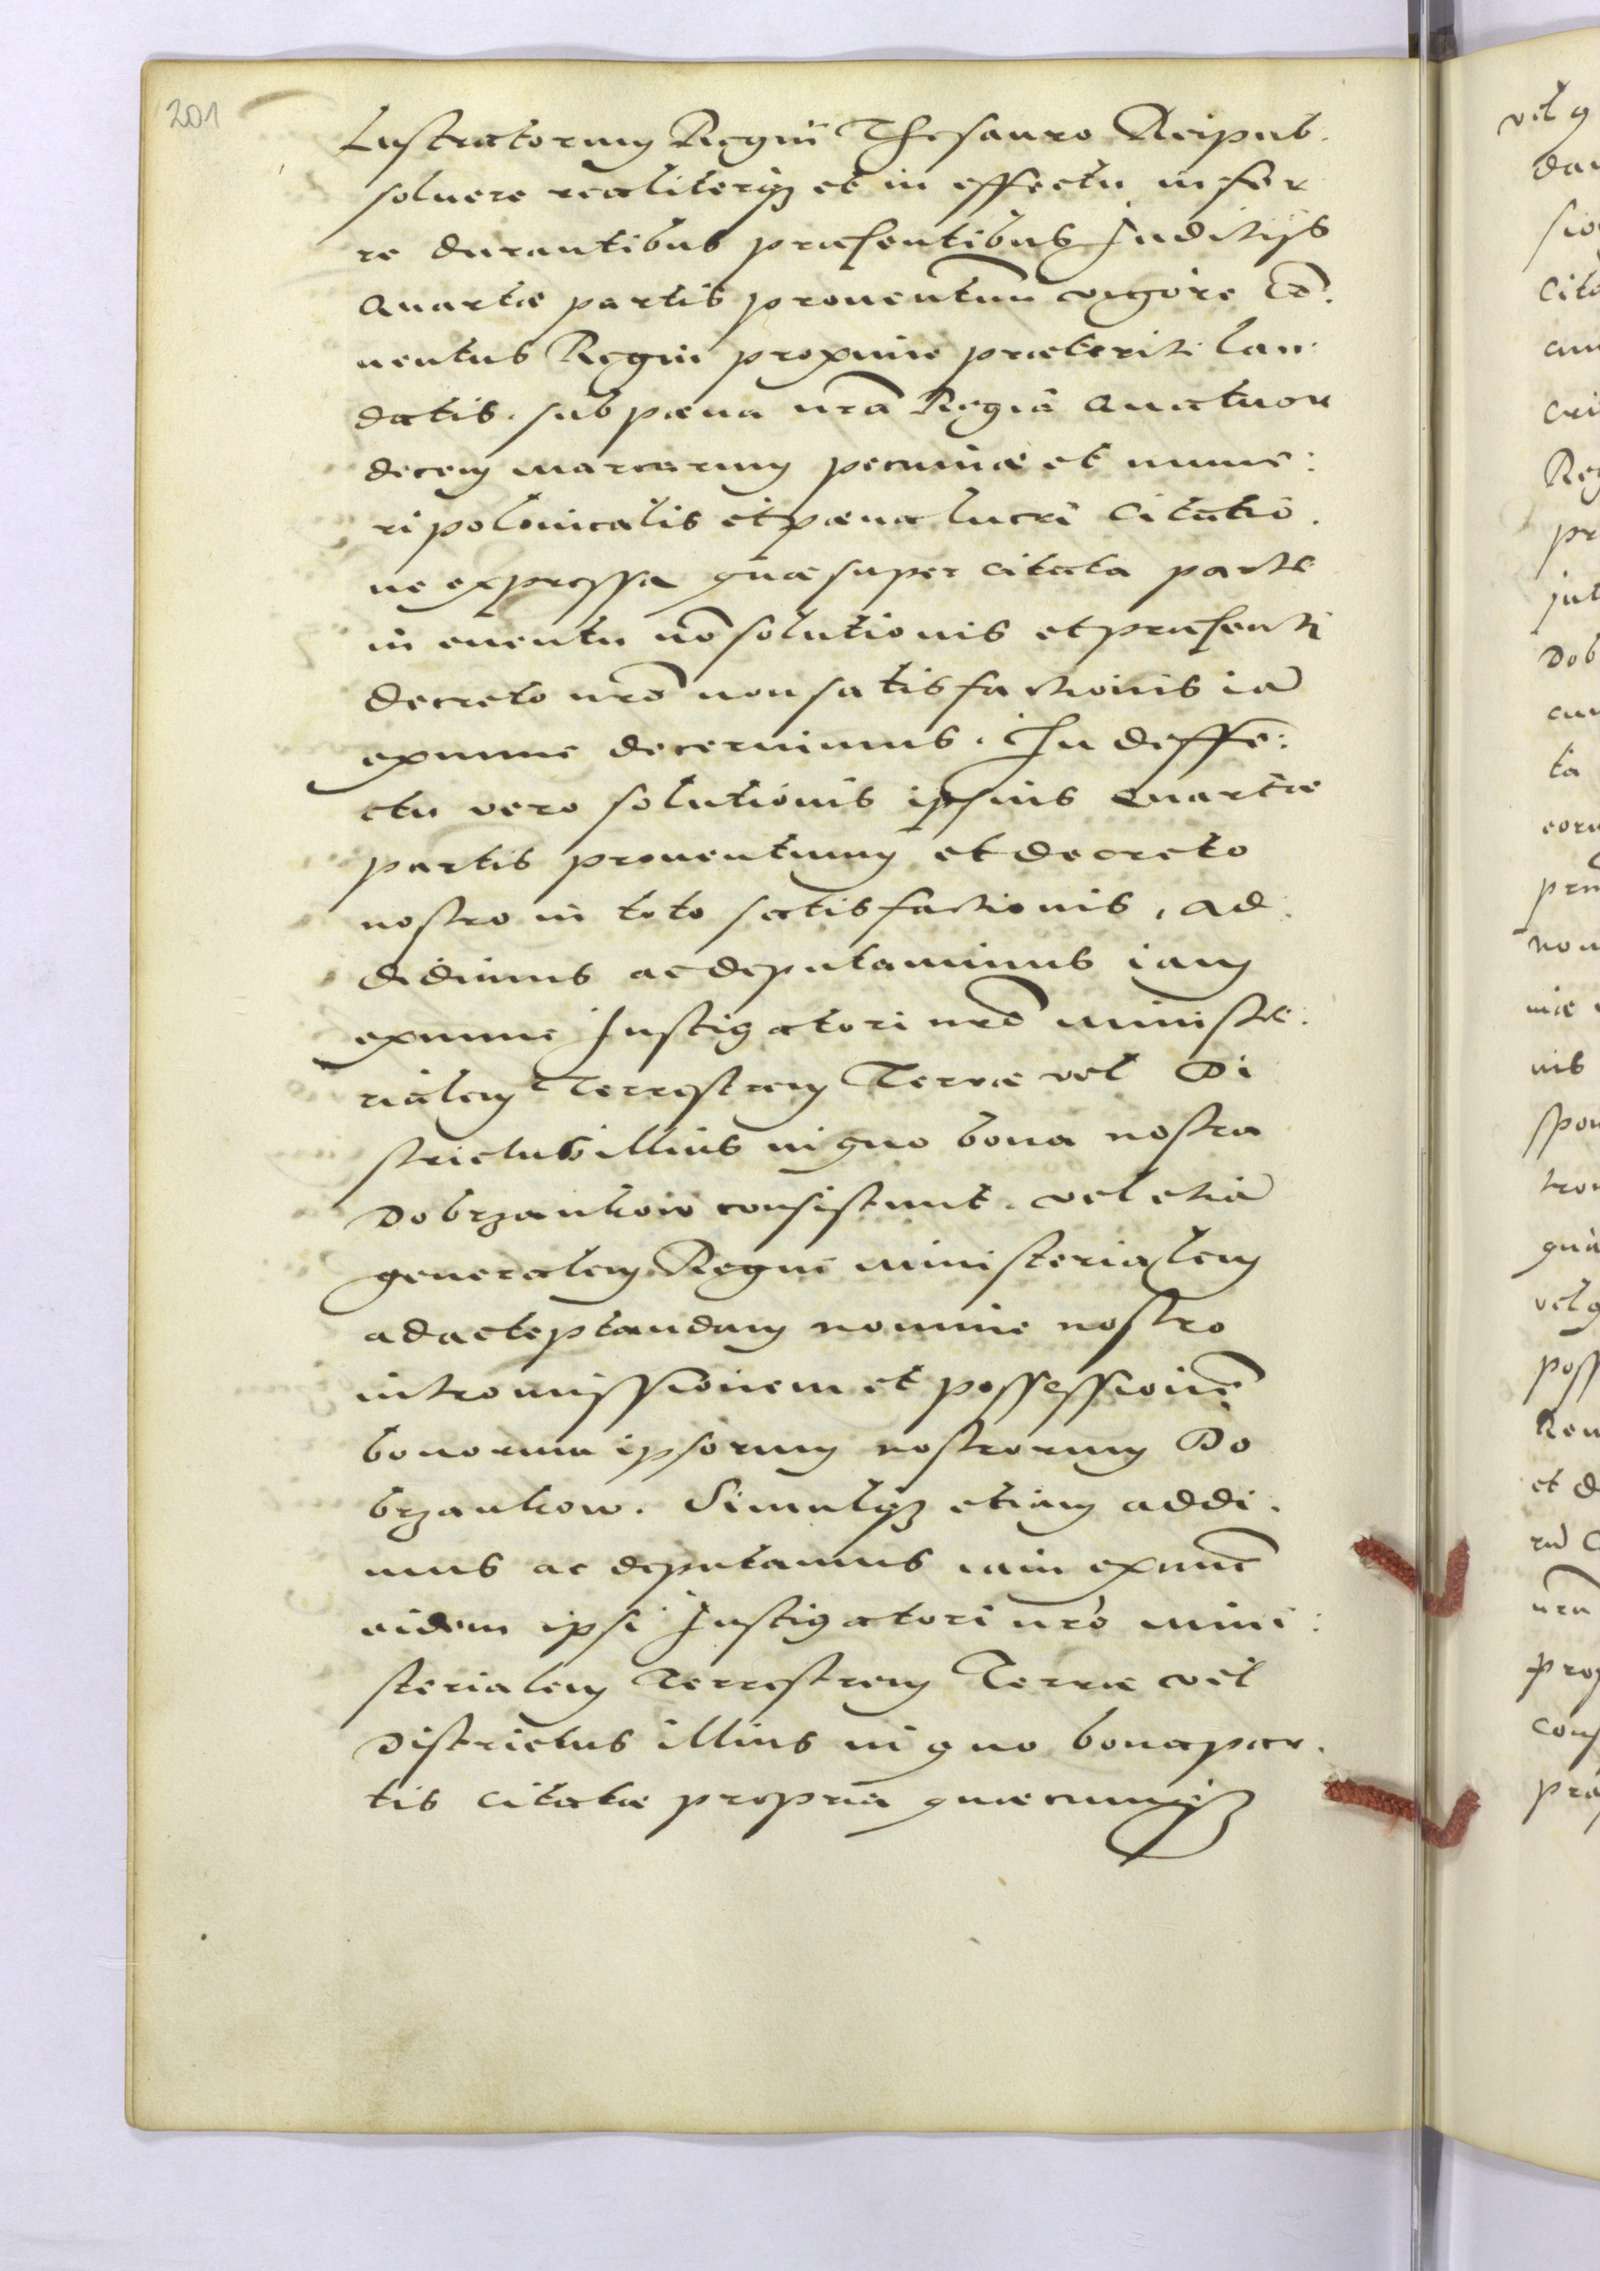 201
Lustratorum Regni Thesauro Reipub.
soluere realiterq3 et in effectu infer
re durantibus præsentibus Juditijs
Quartæ partis prouentuum vigore Cõ:
uentus Regni proxime præteriti lau:
datis. sub pæna nrã Regiã Quatuor
decem marcarum pecuniæ et nume:
ri polonicalis et pæna lucri Citatio.
ne expressa quæ super citata parte
in euentu nõ solutionis et præsenti
decreto nrõ non satisfactionis iã
exnunc decernimus. In deffe:
ctu vero solutionis ipsius Quartæ
partis prouentuum et decreto
nostro in toto satisfactionis, ad:
didimus ac deputauimus iam
exnunc Instigatori nrõ ministe:
rialem Terrestrem Terræ vel Di
strictus illius in quo bona nostra
Dobrzankow consistunt. vel etiã
generalem Regni ministerialem
ad acceptandam nomine nostro
intromissionem et possessionẽ
bonorum ipsorum nostrorum Do
brzankow. Simulq3 etiam addi.
mus ac deputamus iam exnunc
eidem ipsi Instigatori nrõ mini:
sterialem Terrestrem Terræ vel
Districtus illius in quo bona par.
tis citatæ propria quæcunq3